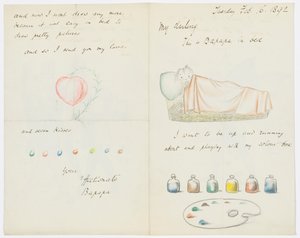 Tuesday Feb. 6. 1892
My darling,
I'm a Bapapa in bed
I want to be up and running
about and playing with my colour box
and now I must draw any more,
because it's not easy in bed to
draw pretty pictures
and so I send you my love.
and seven kisses
Your
affectionate
Bapapa